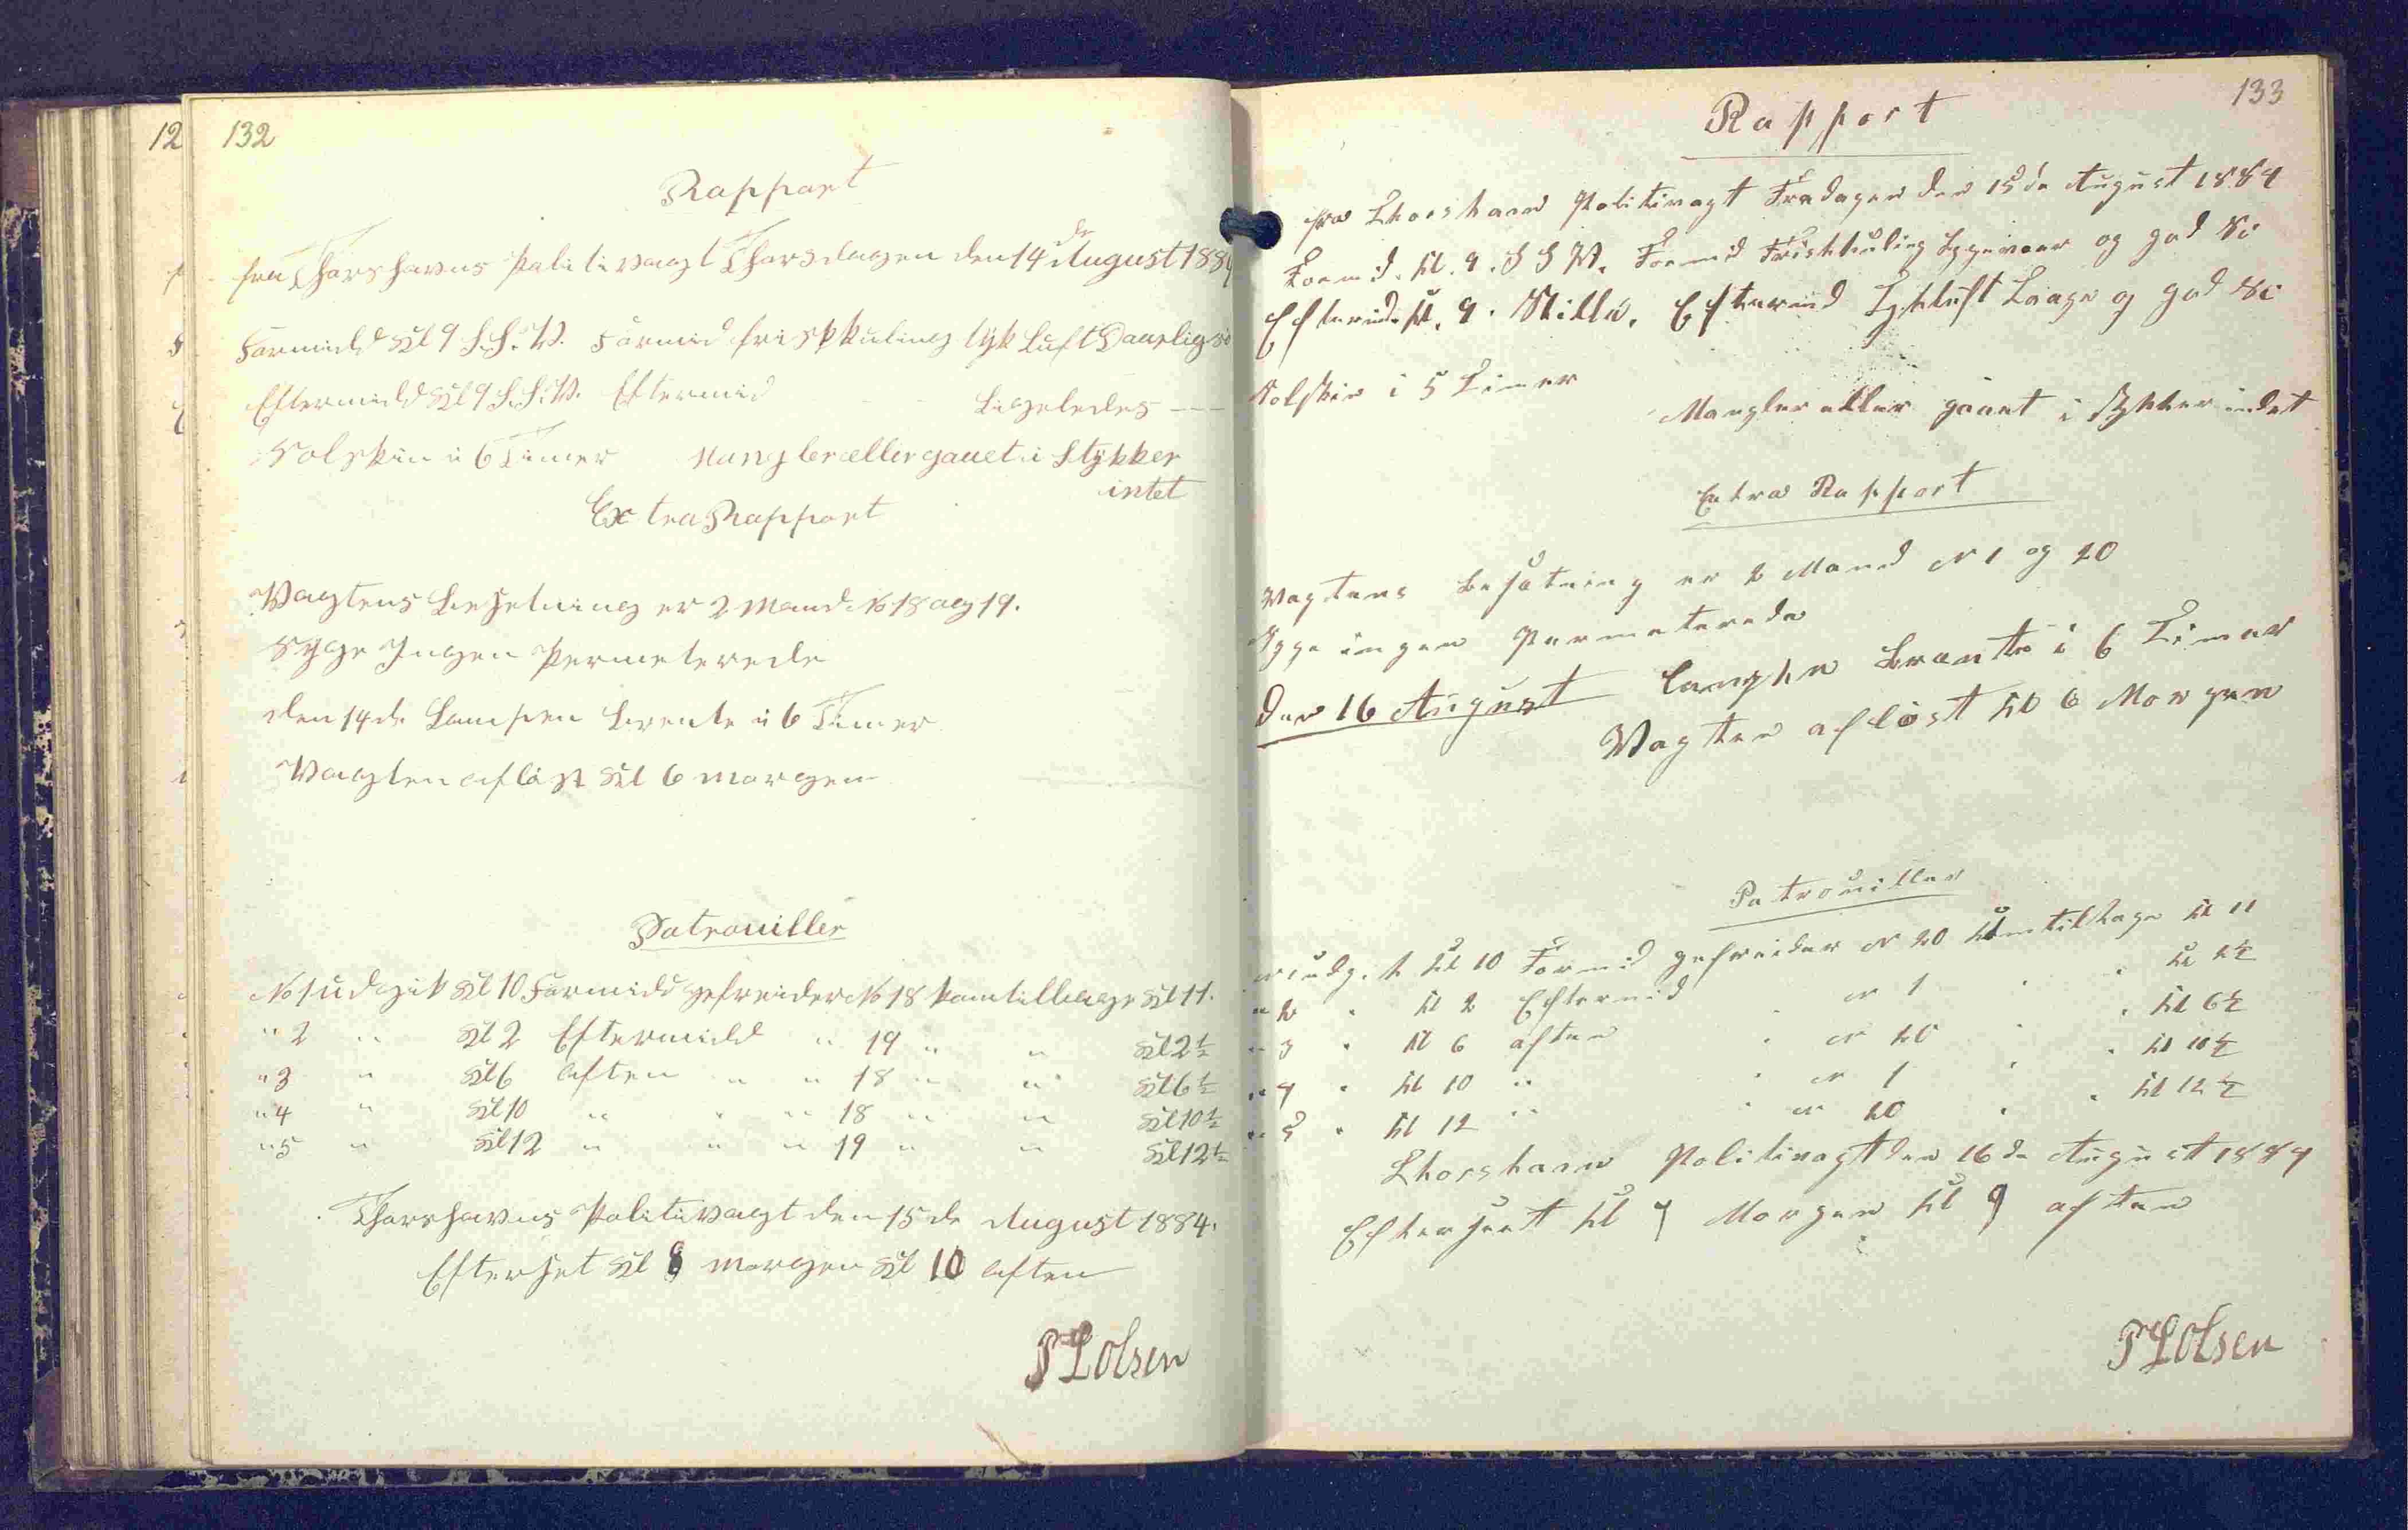 12
132
Rapport
fra Thorshavns Politivagt Thorsdagen den 14de August 1884
Formidd Kl 9 S.S.V. Formid friskkuling tyk Luft Daarlig Si
Eftermidd Kl 9 S.S.V. Eftermid - - Ligeledes - - -
Solskin i 6 Timer Mangler eller gaaet i Stykker
intet
Extra Rapport
Vagtens Besetning er 2 Mand No 18 og 19.
Syge Ingen Permeterede
den 14de Lampen brente i 6 Timer
Vagten afløst Kl 6 morgen
Patrouiller
No 1 udgik Kl 10 Formidd gefreider No 18 kom tilbage Kl 11.
" 2 " Kl 2 Eftermidd " 19 " " Kl 2½
" 3 " Kl 6 aften " " 18 " " Kl 6½
" 4 " Kl 10 " " " 18 " " Kl 10½
" 5 " Kl 12 " " " 19 " " Kl 12½
Thorshavns Politivagt den 15de August 1884.
Efterset Kl 8 morgen Kl 10 aften
P L Olsen
133
Rapport
fra Thorshavn Politivagt Fredagen den 15de August 1884
Formd. Kl. 9. S S V. Formid Friskkuling og god Si
Eftermd. Kl. 9. Stille. Eftermid Tykluft Taage og god Si
Solskin i 5 Timer
Mangler eller gaaet i Stykker indet
Extra Rapport
Vagtens Besætning er 2 Mand N 1 og 20
Syge ingen Permeterede
Den 16 August Lampen Brente i 6 Timer
Vagten afløst Kl 6 Morgen
Patrouiller
N 1 udgik Kl 10 Formid gefreider N 20 Kom tilbage Kl 11
" 2 " Kl 2 Eftermid N 1 " " Kl 2½
" 3 " Kl 6 aften " N 20 " " Kl 6½
" 4 " Kl 10 " " N 1 " " Kl 10½
" 5 " Kl 12 " " N 20 " " Kl 12½
Thorshavn Politivagt den 16de August 1884
Efterseet Kl 7 Morgen Kl 9 aften
P L Olsen